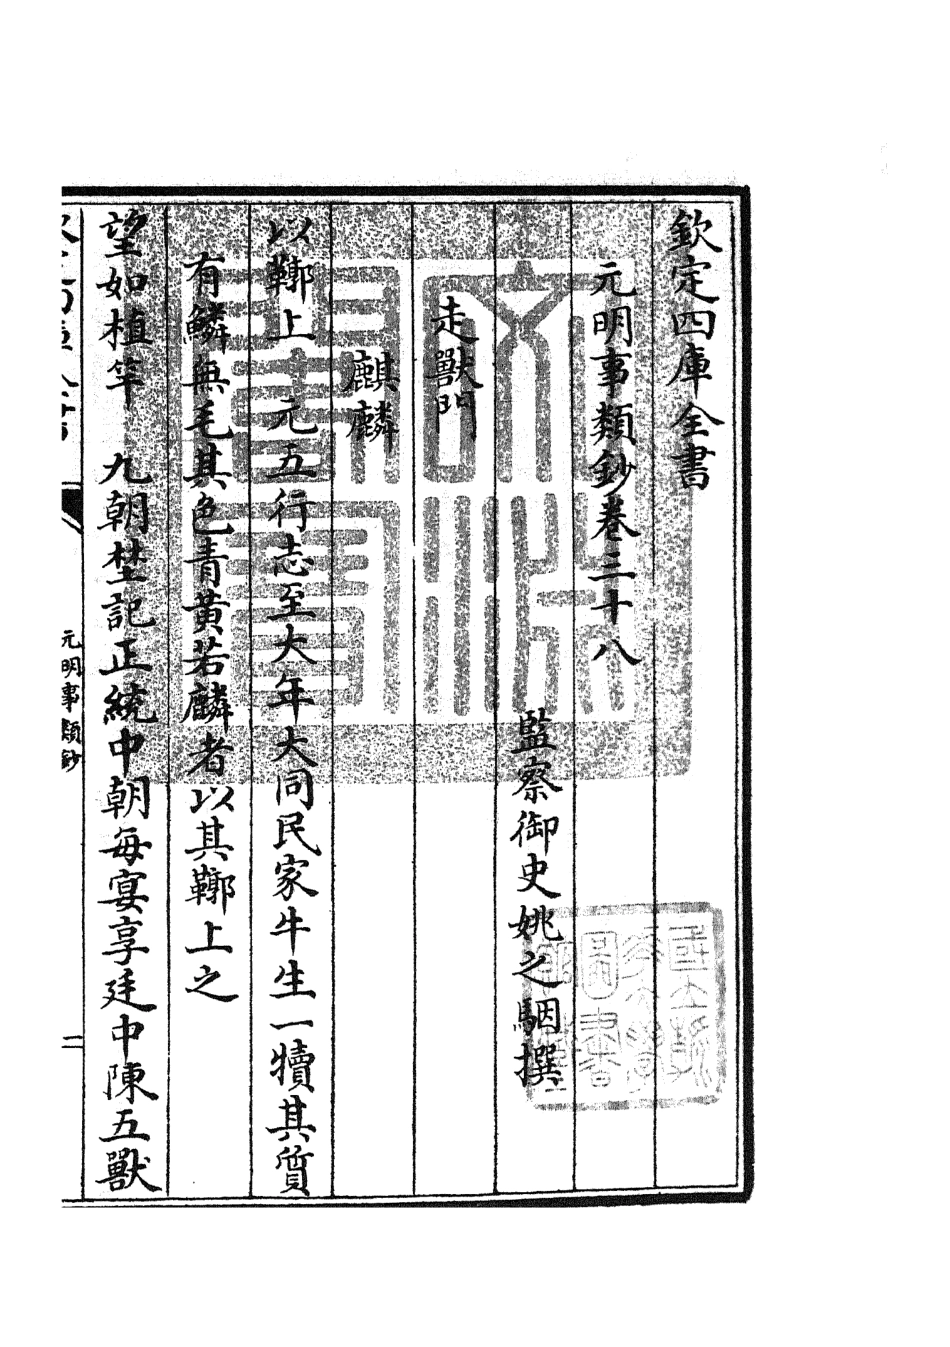 欽定四庫全書
元明事類鈔卷三十八
監察御史姚之駰撰
走獸門
麒麟
以鞹上　元五行志至大年大同民家牛生一犢其質
有鱗無毛其色青黃若麟者以其鞹上之
望如植竿　九朝埜記正統中朝每宴享廷中陳五獸
元明事類鈔
一